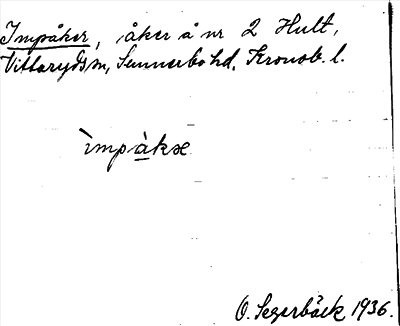 Impåker, åker å nr 2 Hult,
Vittaryds sn, Sunnerbo hd, Kronob. l.
ìmpàkæ
O. Segerbäck 1936.